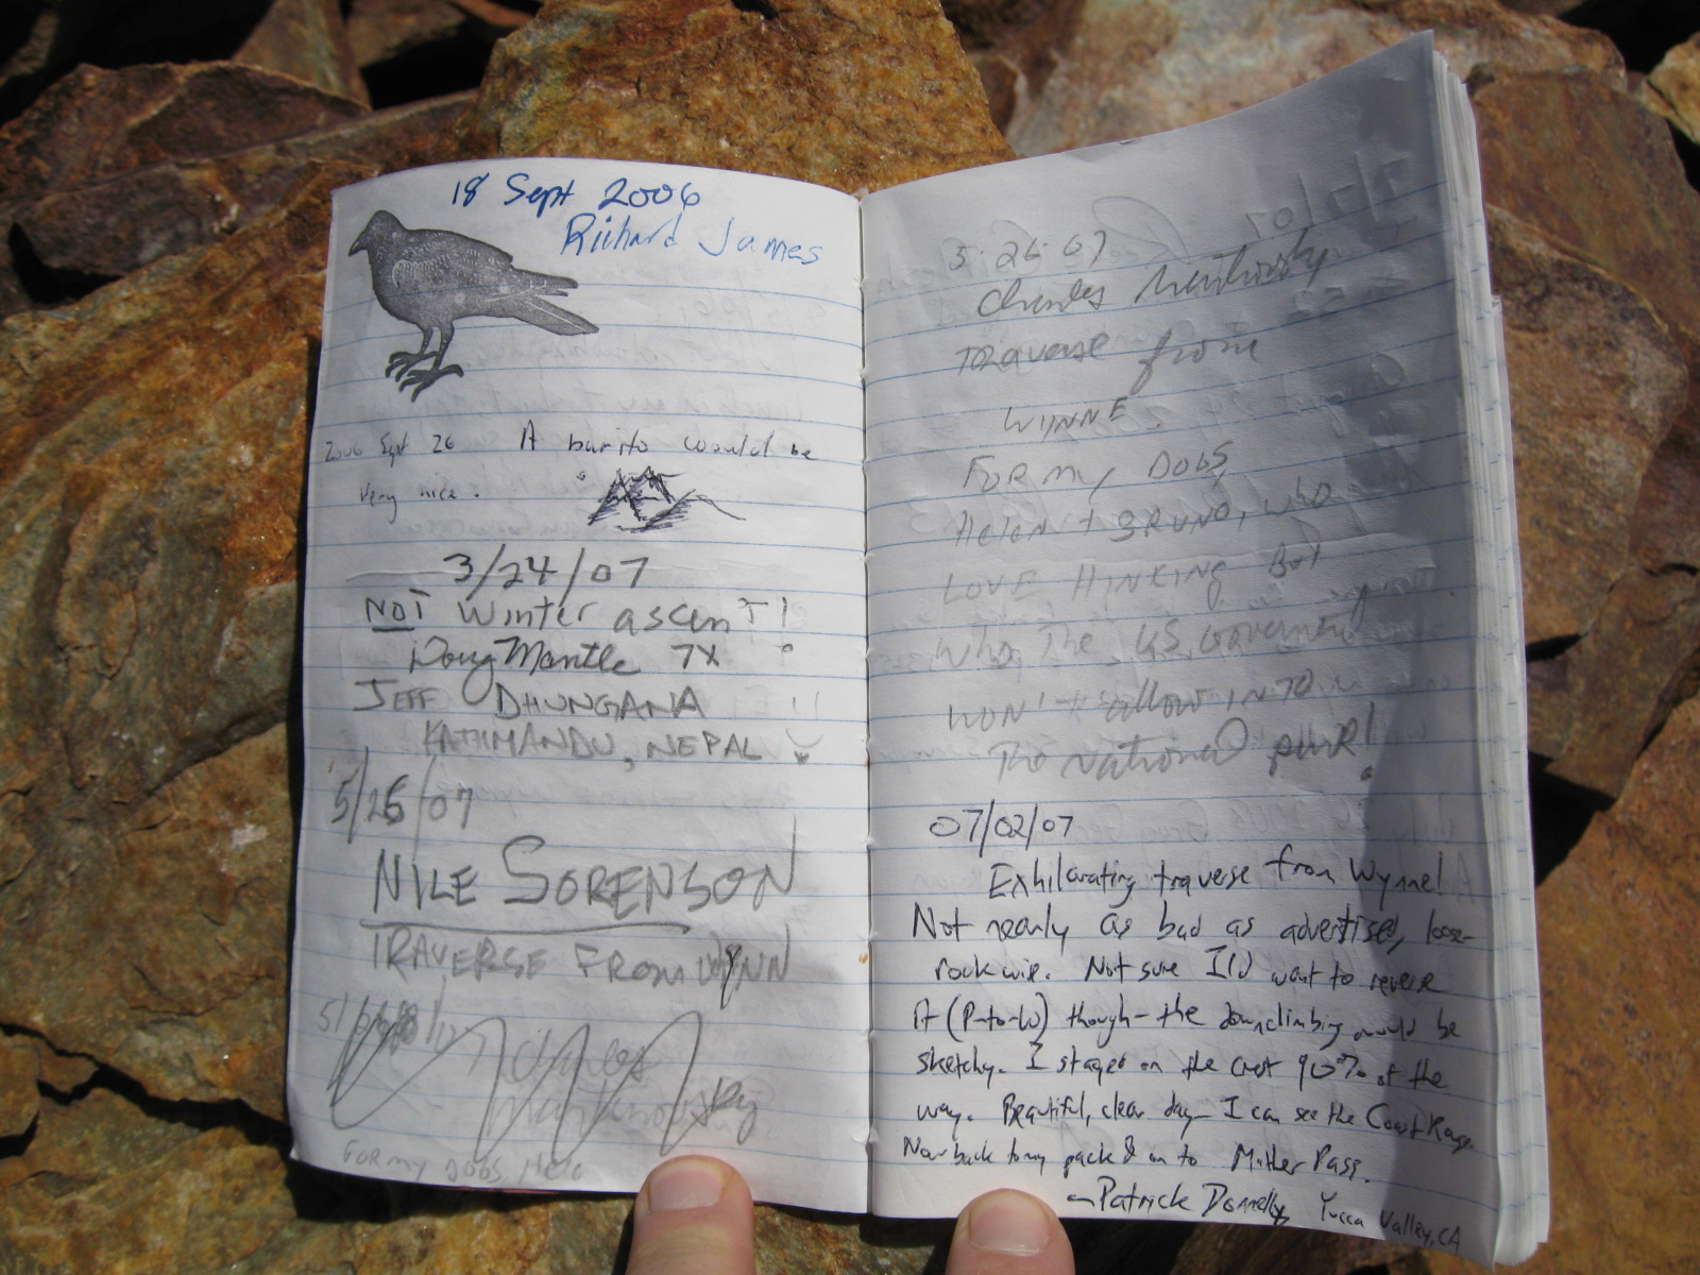 18 Sept 2006
Richard James
2006 Sept 26 A burito would be
very nice.
3/24/07
NOT Winter ascenT!
Doug Mantle 7X
JEFF DHUNGANA
KATHMANDU, NEPAL
5/26/07
NILE SORENSON
TRAVERSE FROM WYNN
FOR MY DOGS, Hele
5·26·07
Charles
TRaverse from
WYNNE.
FOR MY DOGS,
Helen + BRUNO, who
LOVE HINKING BUT
who the US Goverment
WON'T allow INTO
The National park!
07/02/07
Exhilarating traverse from Wynne!
Not nearly as bad as advertised, loose-
rock wise. Not sure I'd want to reverse
it (P-to-W) though - the downclimbing would be
sketchy. I stayed on the crest 90% of the
way. Beautiful, clear day - I can see the Coast Range.
Now back to my pack & on to Mather Pass.
- Patrick Donnelly, Yucca Valley, CA